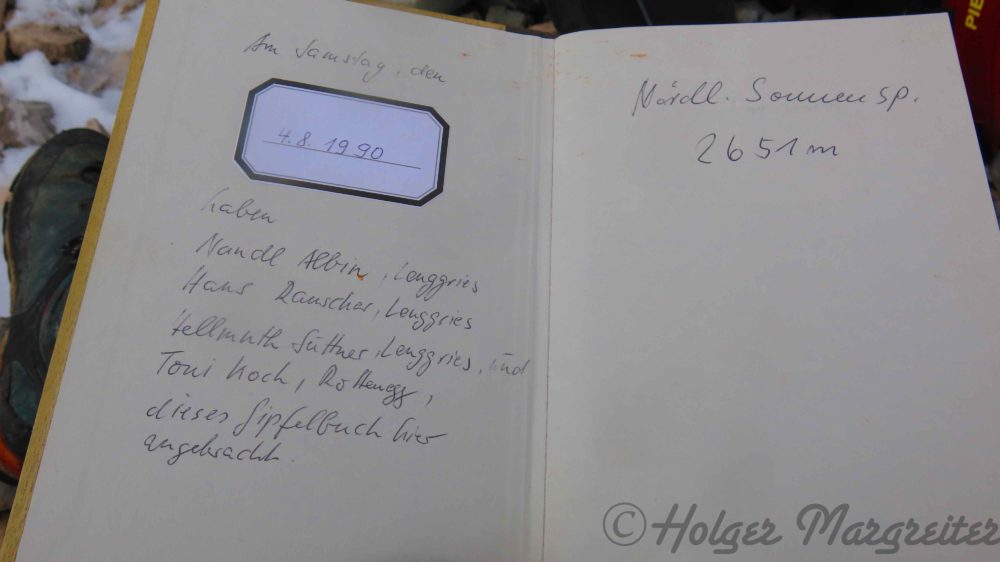 Am Samstag, den
4.8. 1990
haben
Nandl Albin, Lenggries
Hans Rauscher, Lenggries
Hellmuth Süttner, Lenggries, und
Toni Koch, Rottenegg,
dieses Gipfelbuch hier
angebracht.
Nördl. Sonnensp.
2651m
PIE
© Holger Margreiter